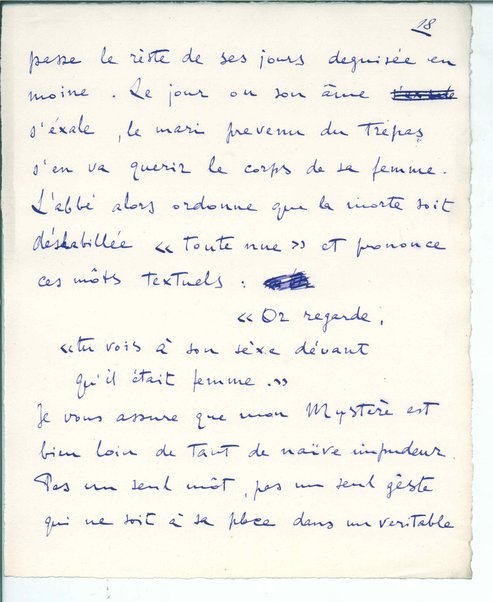 18
passe le riste de ses jours deguisée en
moine. Le jour ou son âme
s'éxale, le mari prevenu du Trépas
s'en va querir le corps de sa femme.
L'abbé alors ordonne que la morte soit
déshabillée « toute nue » et prononce
ces môts textuels :
« Or regarde,
« tu vois à son sèxe dévant
qu'il était femme. »
Je vous assure que mon Mystère est
bien loin de tant de naïve impudeur.
Pas un seul môt, pas un seul gèste
qui ne soit à sa place dans un veritable